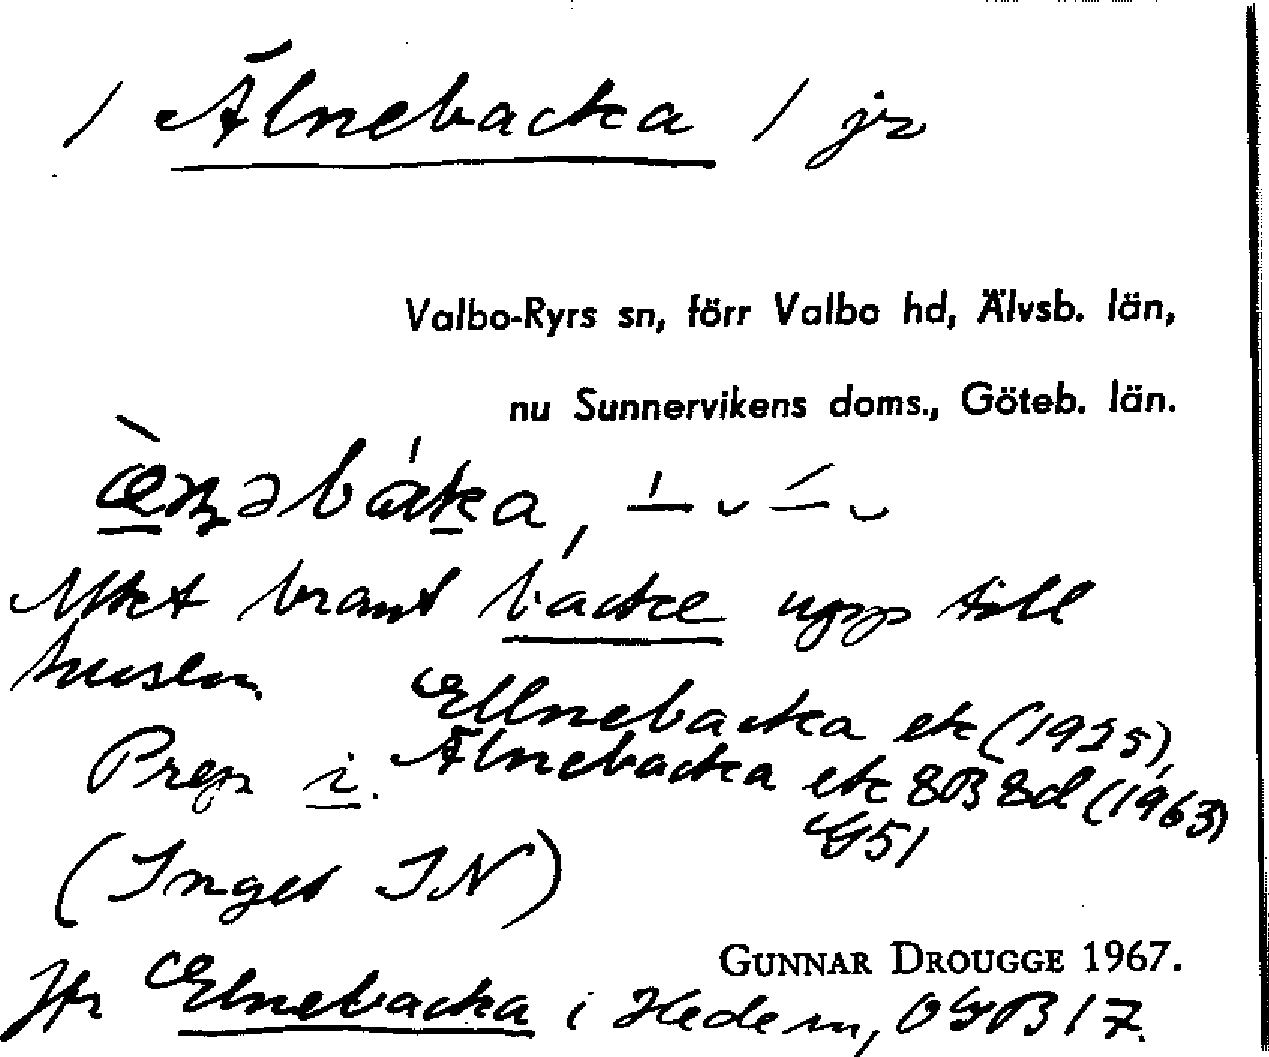 / Älnebacka / js
Valbo-Ryrs sn, förr Valbo hd, Älvsb. län,
nu Sunnervikens doms., Göteb. län.
Mkt brant backe upp till
husen.
Ellnebacka ek (1925),
Prep i. Älnebacka ek 8B 8d (1963)
(Inget IN)
GUNNAR DROUGGE 1967.
Jfr Elnebacka i Hedem, OGB 17.